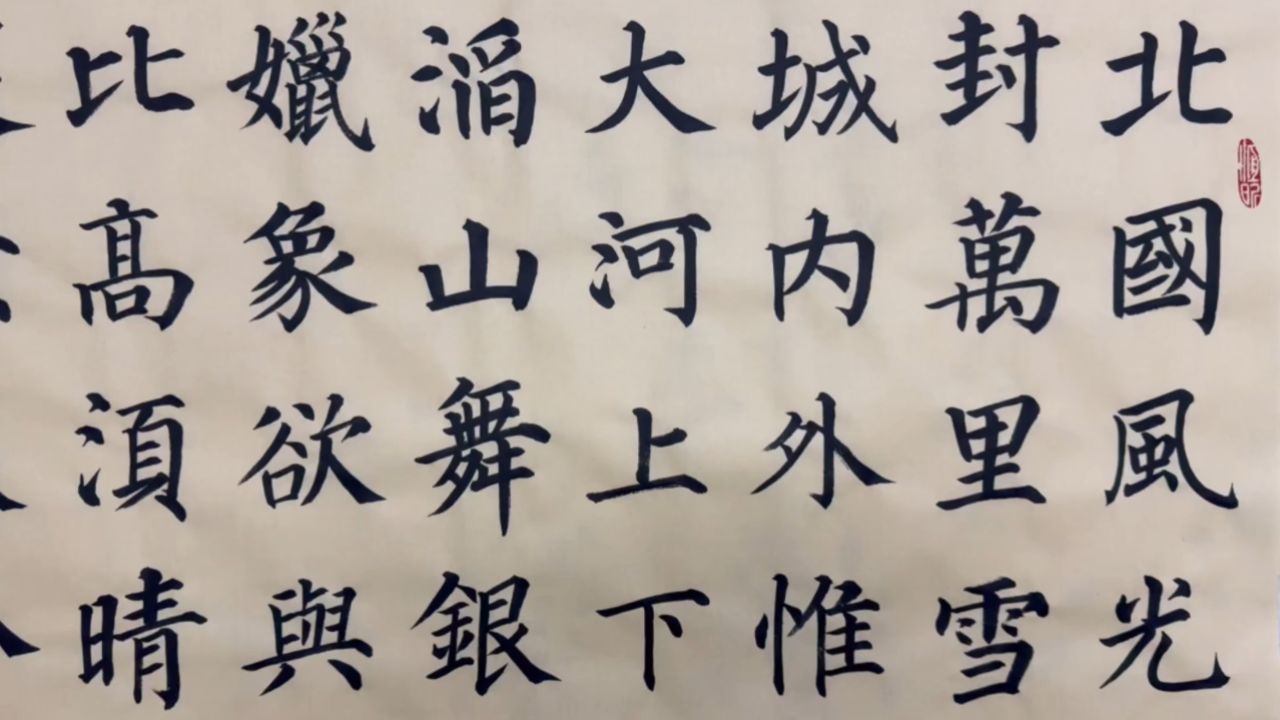 北國風光
封萬里雪
城内外惟
大河上下
滔山舞銀
蠟象欲與
比髙湏晴